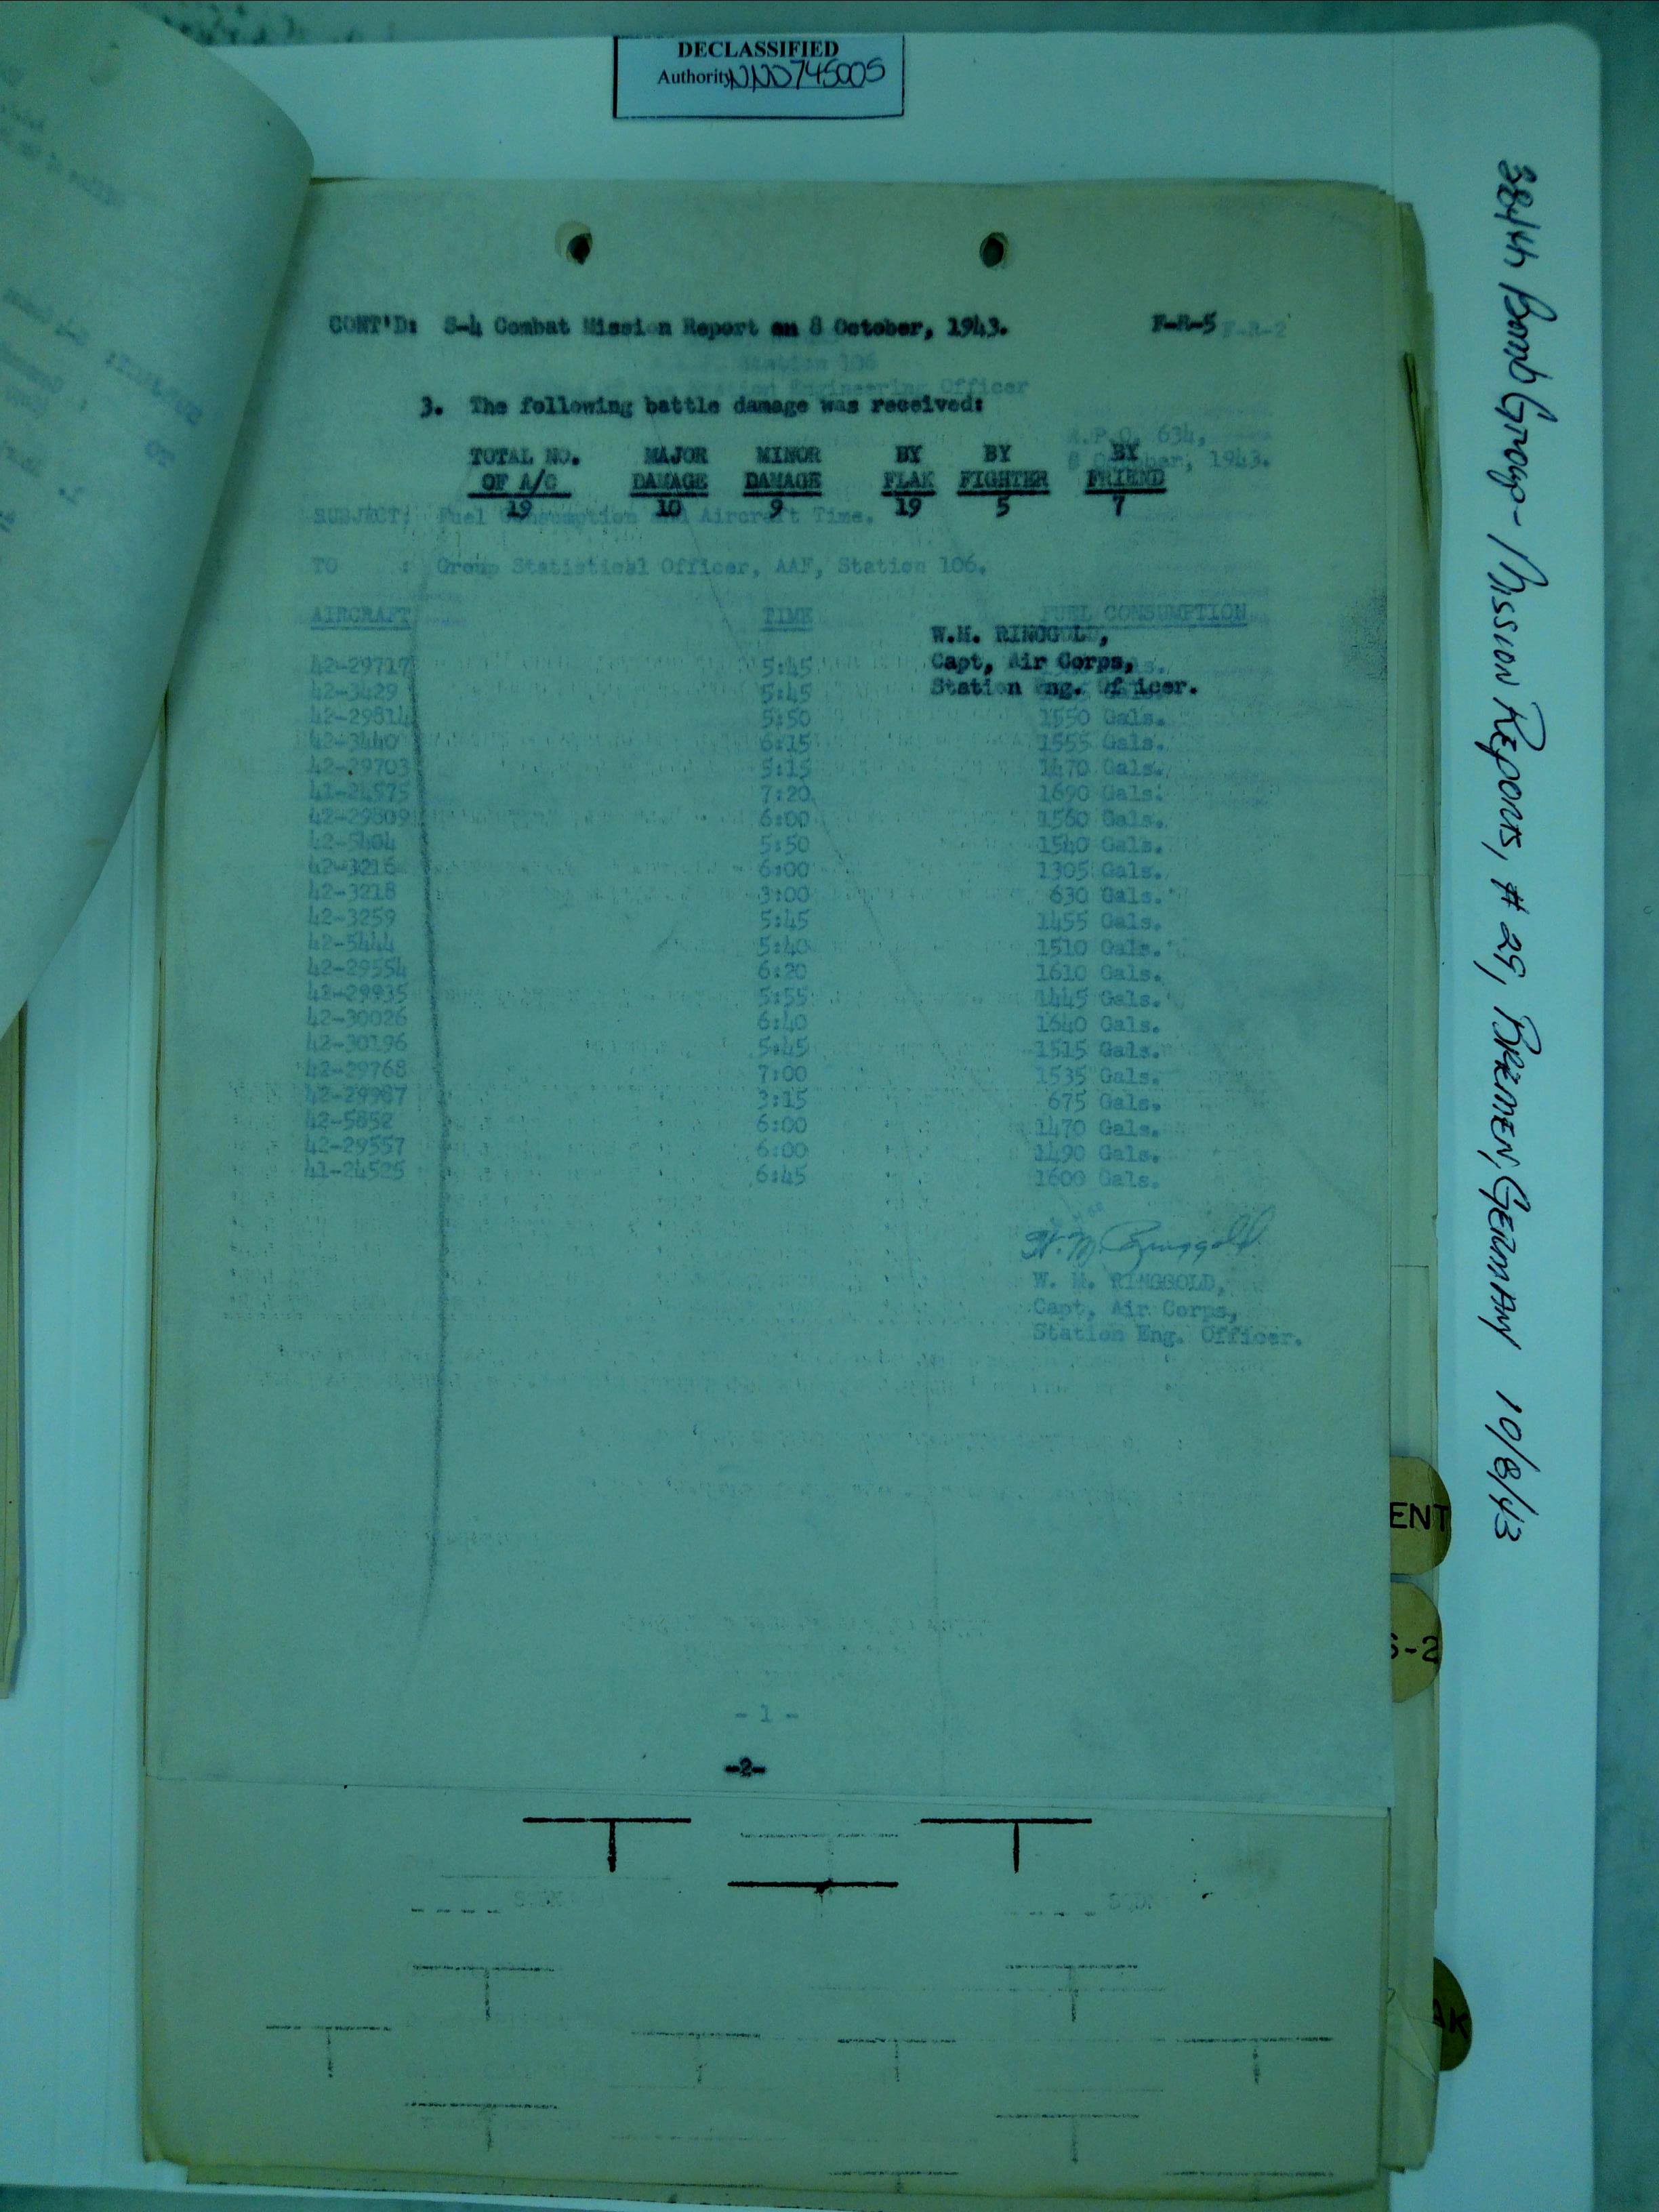 DECLASSIFIED
Authority NND745005
CONT'D: S-4 Combat Mission Report on 8 October, 1943. F-R-5 F-R-2
Station 106
Station Engineering Officer
3. The following battle damage was received:
A.P.O. 634,
8 October, 1943.
TOTAL NO. MAJOR MINOR BY BY BY
OF A/C DAMAGE DAMAGE FLAK FIGHTER FRIEND
19 10 9 19 5 7
SUBJECT: Fuel Consumption and Aircraft Time.
TO : Group Statistical Officer, AAF, Station 106.
AIRCRAFT TIME FUEL CONSUMPTION
W.M. RINGGOLD,
Capt, Air Corps,
Station Eng. Officer.
42-29717 5:45
42-3429 5:45
42-29814 5:50 1550 Gals.
42-3440 6:15 1555 Gals.
42-29703 5:15 1470 Gals.
41-24575 7:20 1690 Gals.
42-29809 6:00 1560 Gals.
42-5404 5:50 1540 Gals.
42-3216 6:00 1305 Gals.
42-3218 3:00 630 Gals.
42-3259 5:45 1455 Gals.
42-5444 5:40 1510 Gals.
42-29554 6:20 1610 Gals.
42-29935 5:55 1445 Gals.
42-30026 6:40 1640 Gals.
42-30196 5:45 1515 Gals.
42-29768 7:00 1535 Gals.
42-29987 3:15 675 Gals.
42-5852 6:00 1470 Gals.
42-29557 6:00 1490 Gals.
41-24525 6:45 1600 Gals.
W. M. Ringgold
W. M. RINGGOLD,
Capt, Air Corps,
Station Eng. Officer.
- 1 -
-2-
384th Bomb Group - Mission Reports, # 25, Bremen, Germany 10/8/43
ENT
S-2
AK